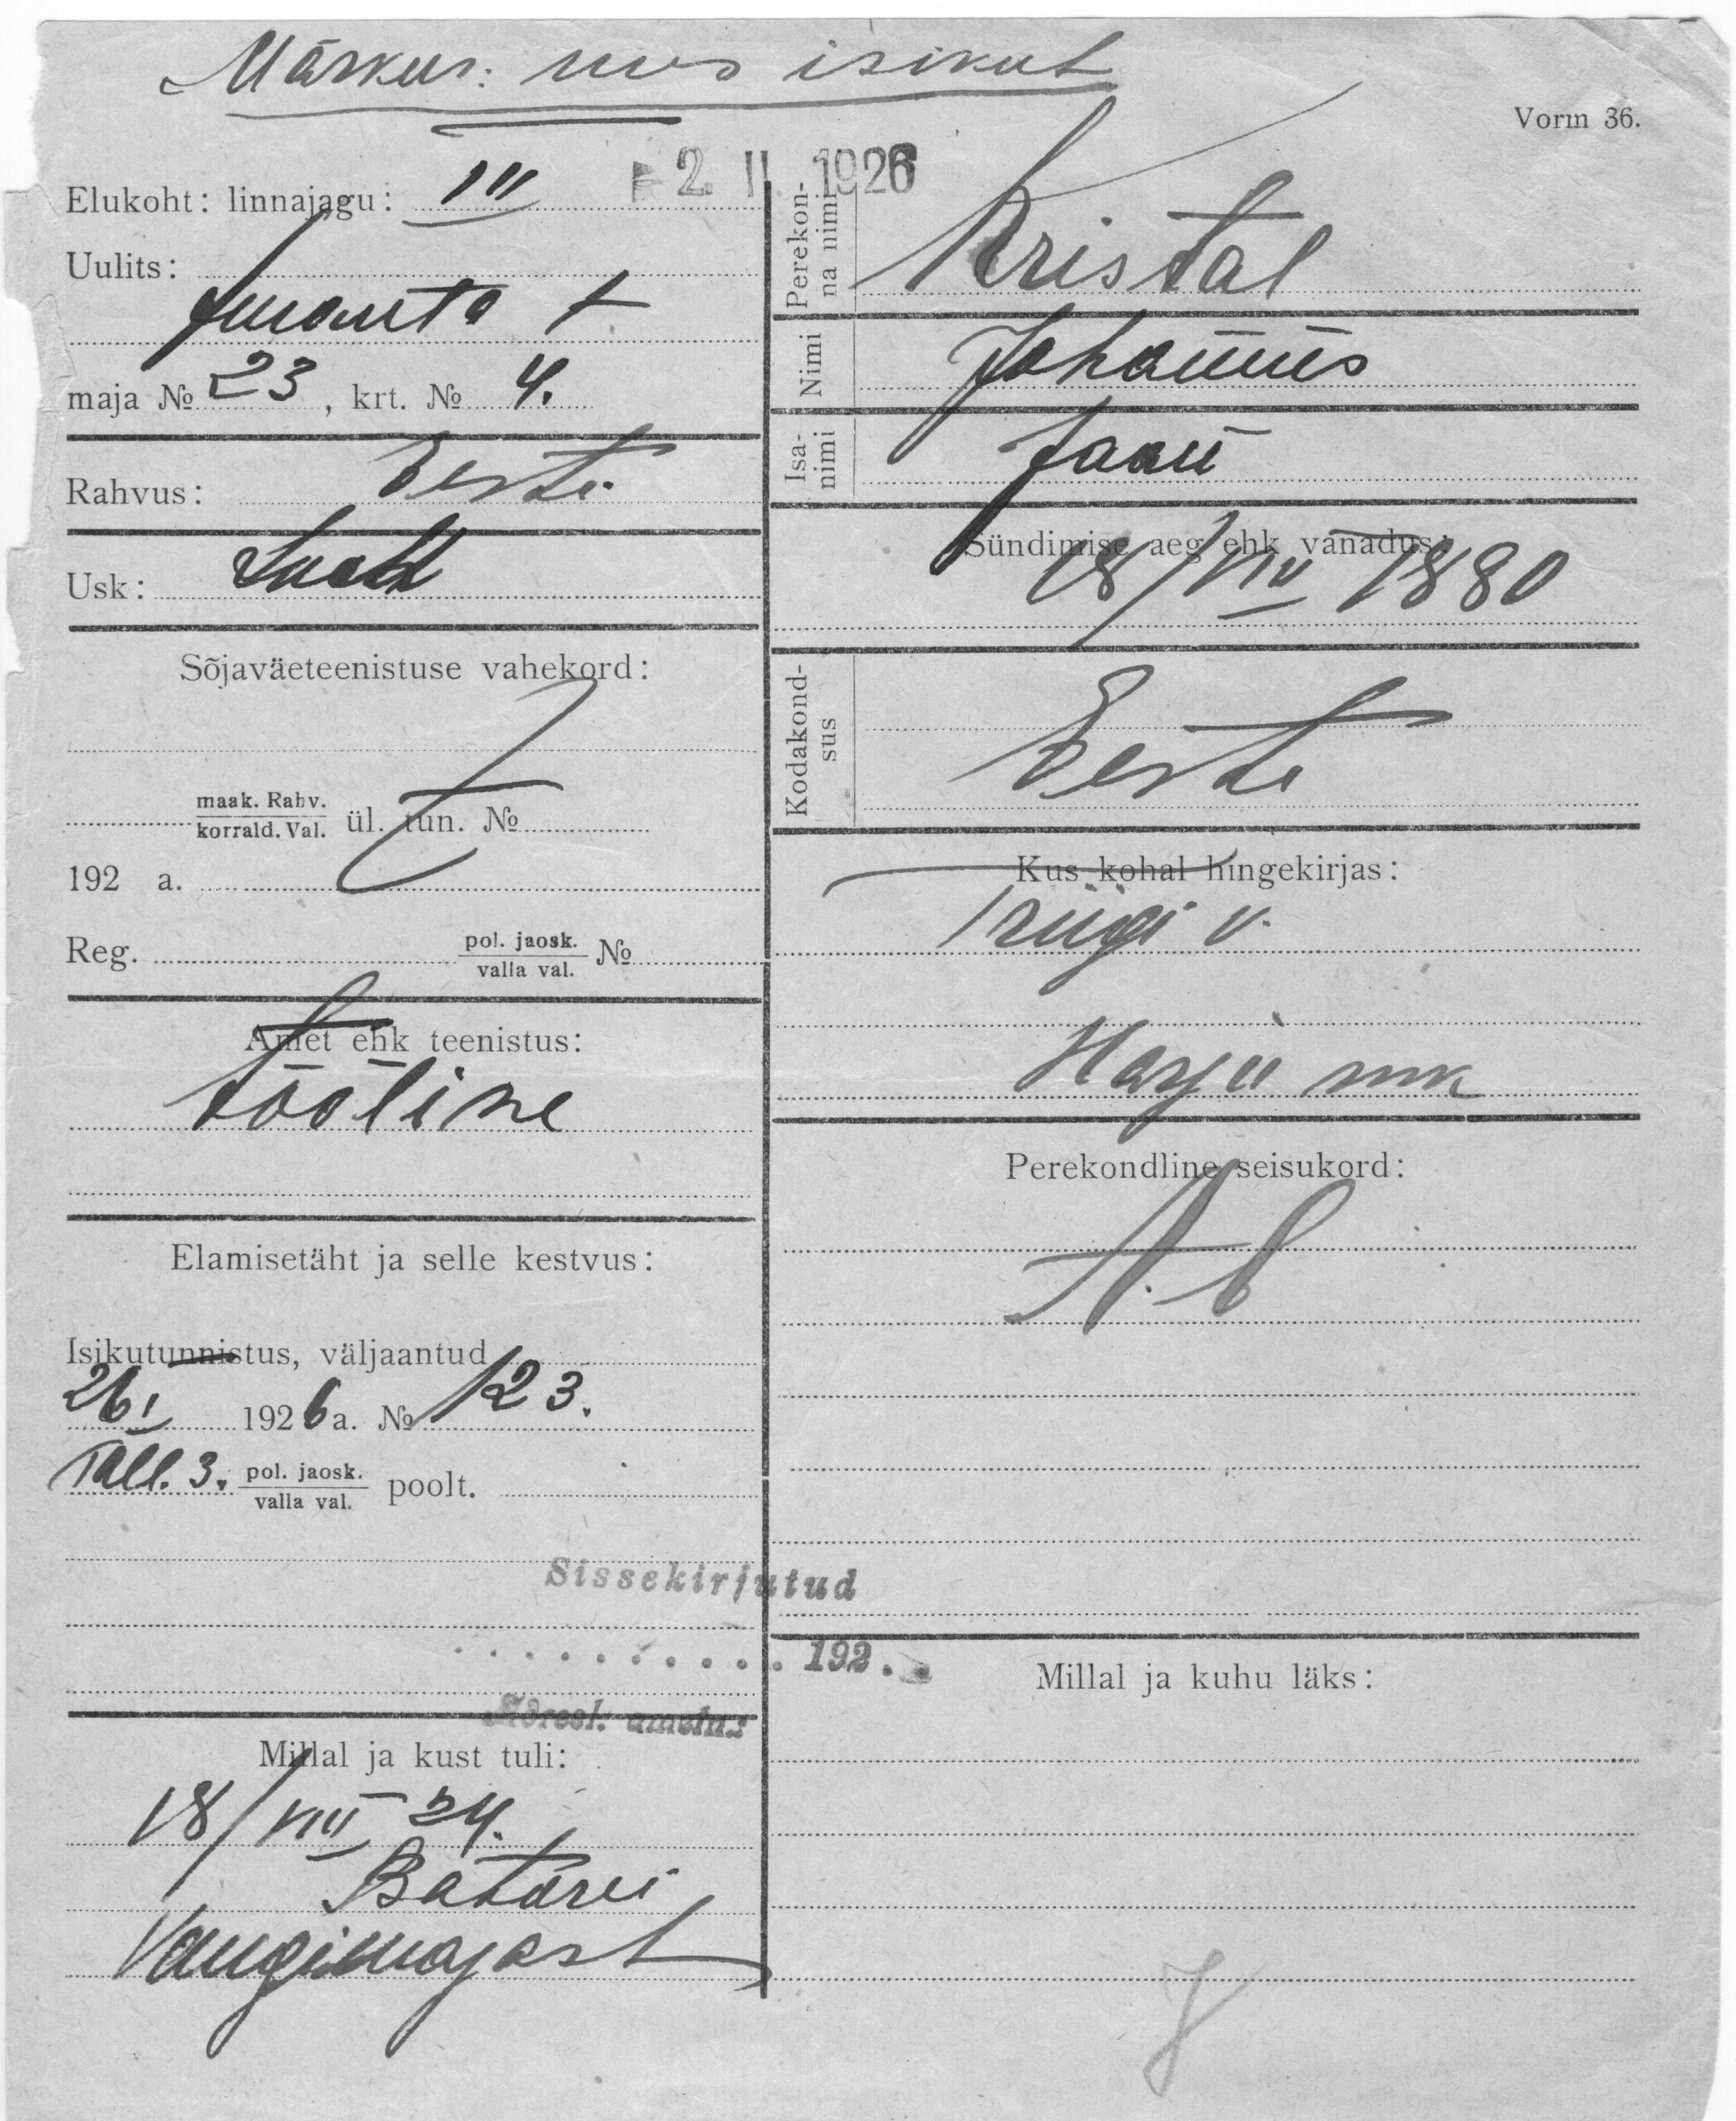 Märkus: uus isikut
Vorm 36.
- 2. II. 1926
Elukoht: linnajagu: III
Uulits:
maja № 23, krt. № 4.
Rahvus: Eesti
Usk: Luth
Sõjaväeteenistuse vahekord:
maak. Rahv.
korrald. Val. ül. tun. №
192 a.
Reg. pol. jaosk. №
valla val.
Amet ehk teenistus:
tööline
Elamisetäht ja selle kestvus:
Isikutunnistus, väljaantud
26 I 1926 a. № 123.
Tall. 3. pol. jaosk. poolt.
valla val.
Sissekirjutud
. . . . . . . . . . . 192 . .
Adresl. ametus
Millal ja kust tuli:
18/VIII 24.
Batarei
Vangimajast
Perekon-
na nimi
Kristal
Nimi Johannes
Isa-
nimi
Jaan
Sündimise aeg ehk vanadus:
18/VIII 1880
Kodakond-
sus
Eesti
Kus kohal hingekirjas:
Triigi v.
Harju mk
Perekondline seisukord:
A. b
Millal ja kuhu läks: